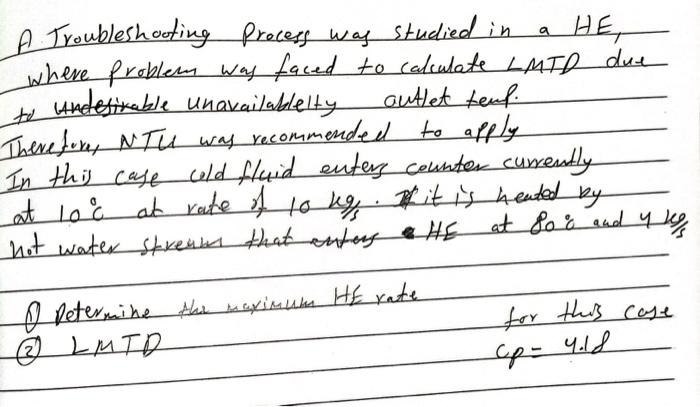 A Troubleshooting Process was studied in a HE,
where problem was faced to calculate LMTD due
to undesirable unavailabdelty outlet temp.
Therefore, NTU was recommended to apply
In this case cold fluid enters counter currently
at 10°c at rate of 10 kg/s. it is heated by
hot water stream that enters HE at 80°c and 4 kg/s
① Determine the maximum HE rate
for this case
② LMTD
Cp = 4.18